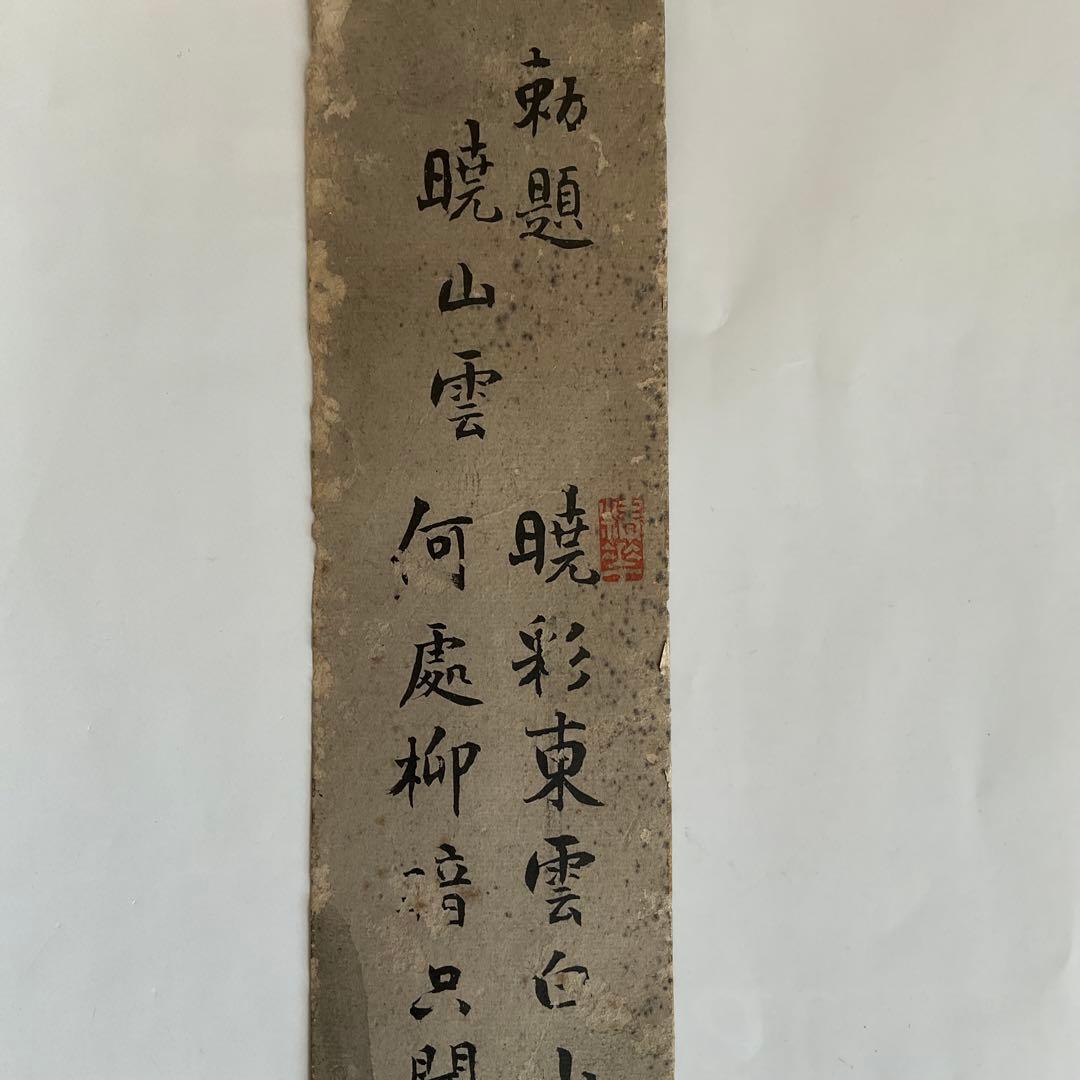 勅題
暁山雲
暁彩東雲白
何處柳暗只聞